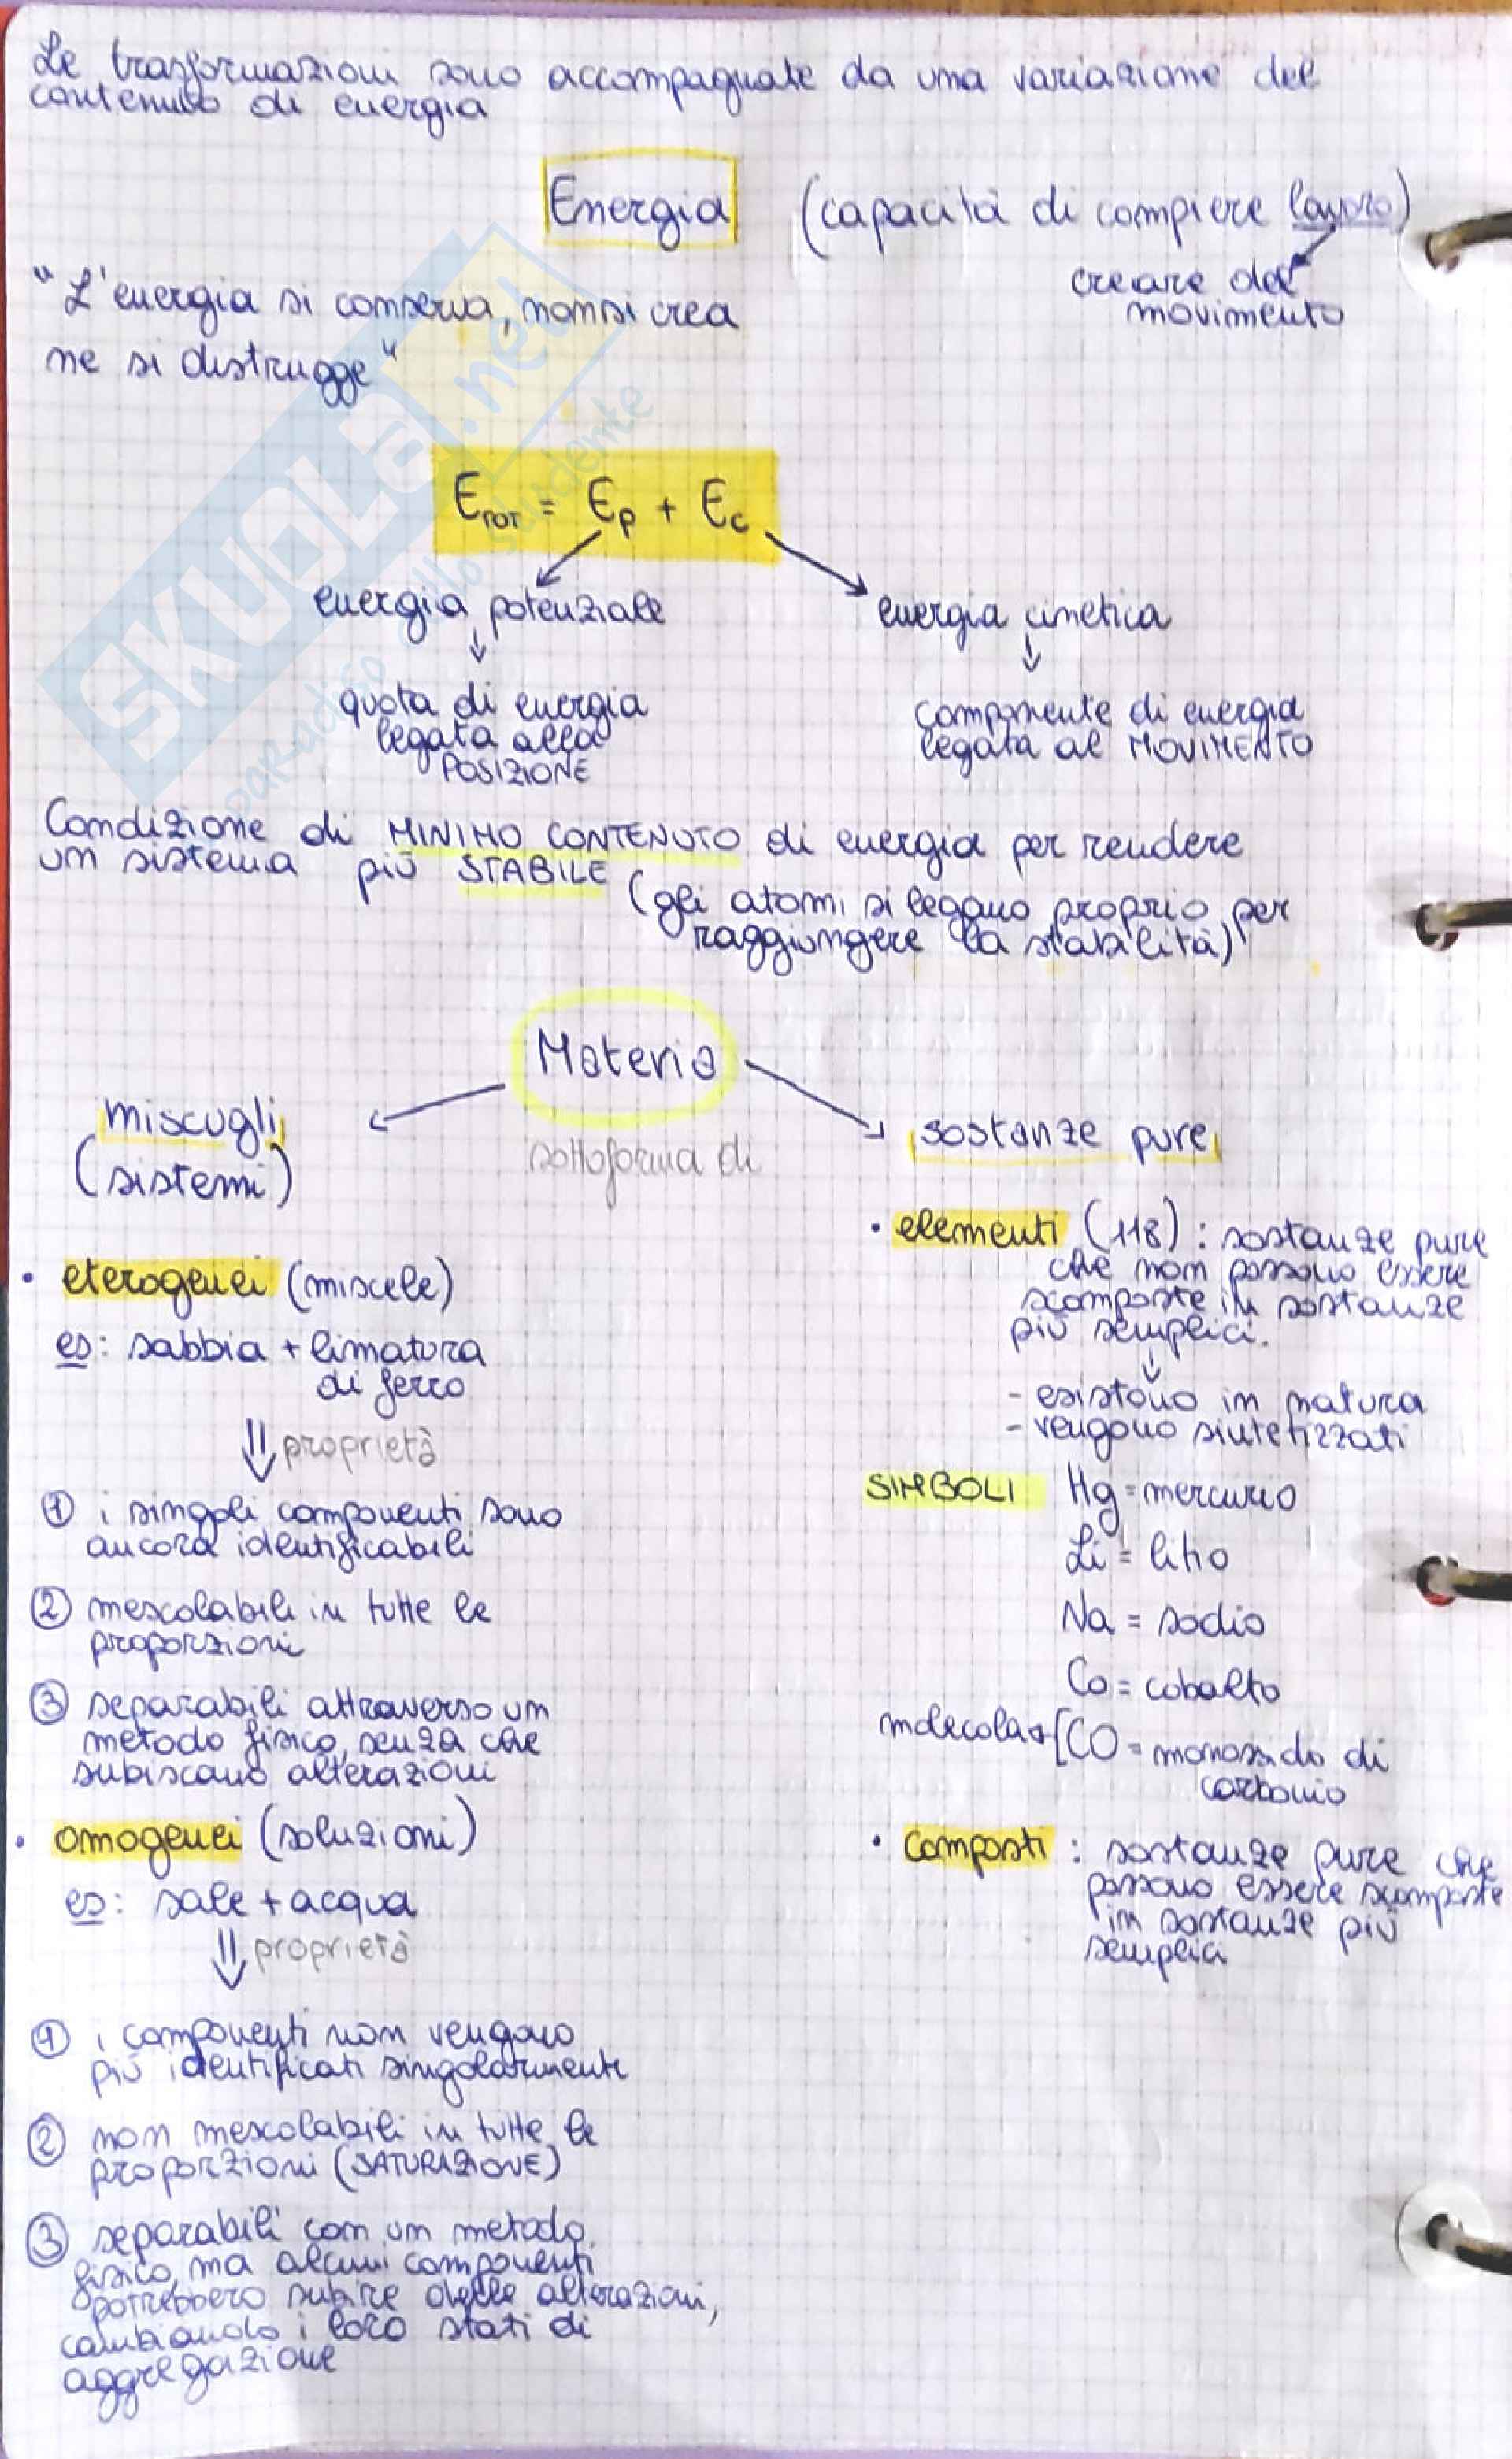 Le trasformazioni sono accompagnate da una variazione del
contenuto di energia
Energia (capacità di compiere lavoro)
creare del
movimento
"L'energia si conserva, non si crea
ne si distrugge"
SKUOLA.net
paradiso dello studente
ETOT = Ep + Ec
energia potenziale
quota di energia
legata alla
POSIZIONE
energia cinetica
componente di energia
legata al MOVIMENTO
Condizione di MINIMO CONTENUTO di energia per rendere
un sistema più STABILE
(gli atomi si legano proprio per
raggiungere la stabilità)
Materia
sottoforma di
miscugli
(sistemi)
• eterogenei (miscele)
es: sabbia + limatura
di ferro
proprietà
① i singoli componenti sono
ancora identificabili
② mescolabili in tutte le
proporzioni
③ separabili attraverso un
metodo fisico, senza che
subiscano alterazioni
• omogenei (soluzioni)
es: sale + acqua
proprietà
① i componenti non vengono
più identificati singolarmente
② non mescolabili in tutte le
proporzioni (SATURAZIONE)
③ separabili con un metodo
fisico, ma alcuni componenti
potrebbero subire delle alterazioni,
cambiando i loro stati di
aggregazione
sostanze pure
• elementi (118) : sostanze pure
che non possono essere
scomposte in sostanze
più semplici.
- esistono in natura
- vengono sintetizzati
SIMBOLI Hg = mercurio
Li = litio
Na = sodio
Co = cobalto
molecola → [CO = monossido di
carbonio
• composti : sostanze pure che
possono essere scomposte
in sostanze più
semplici